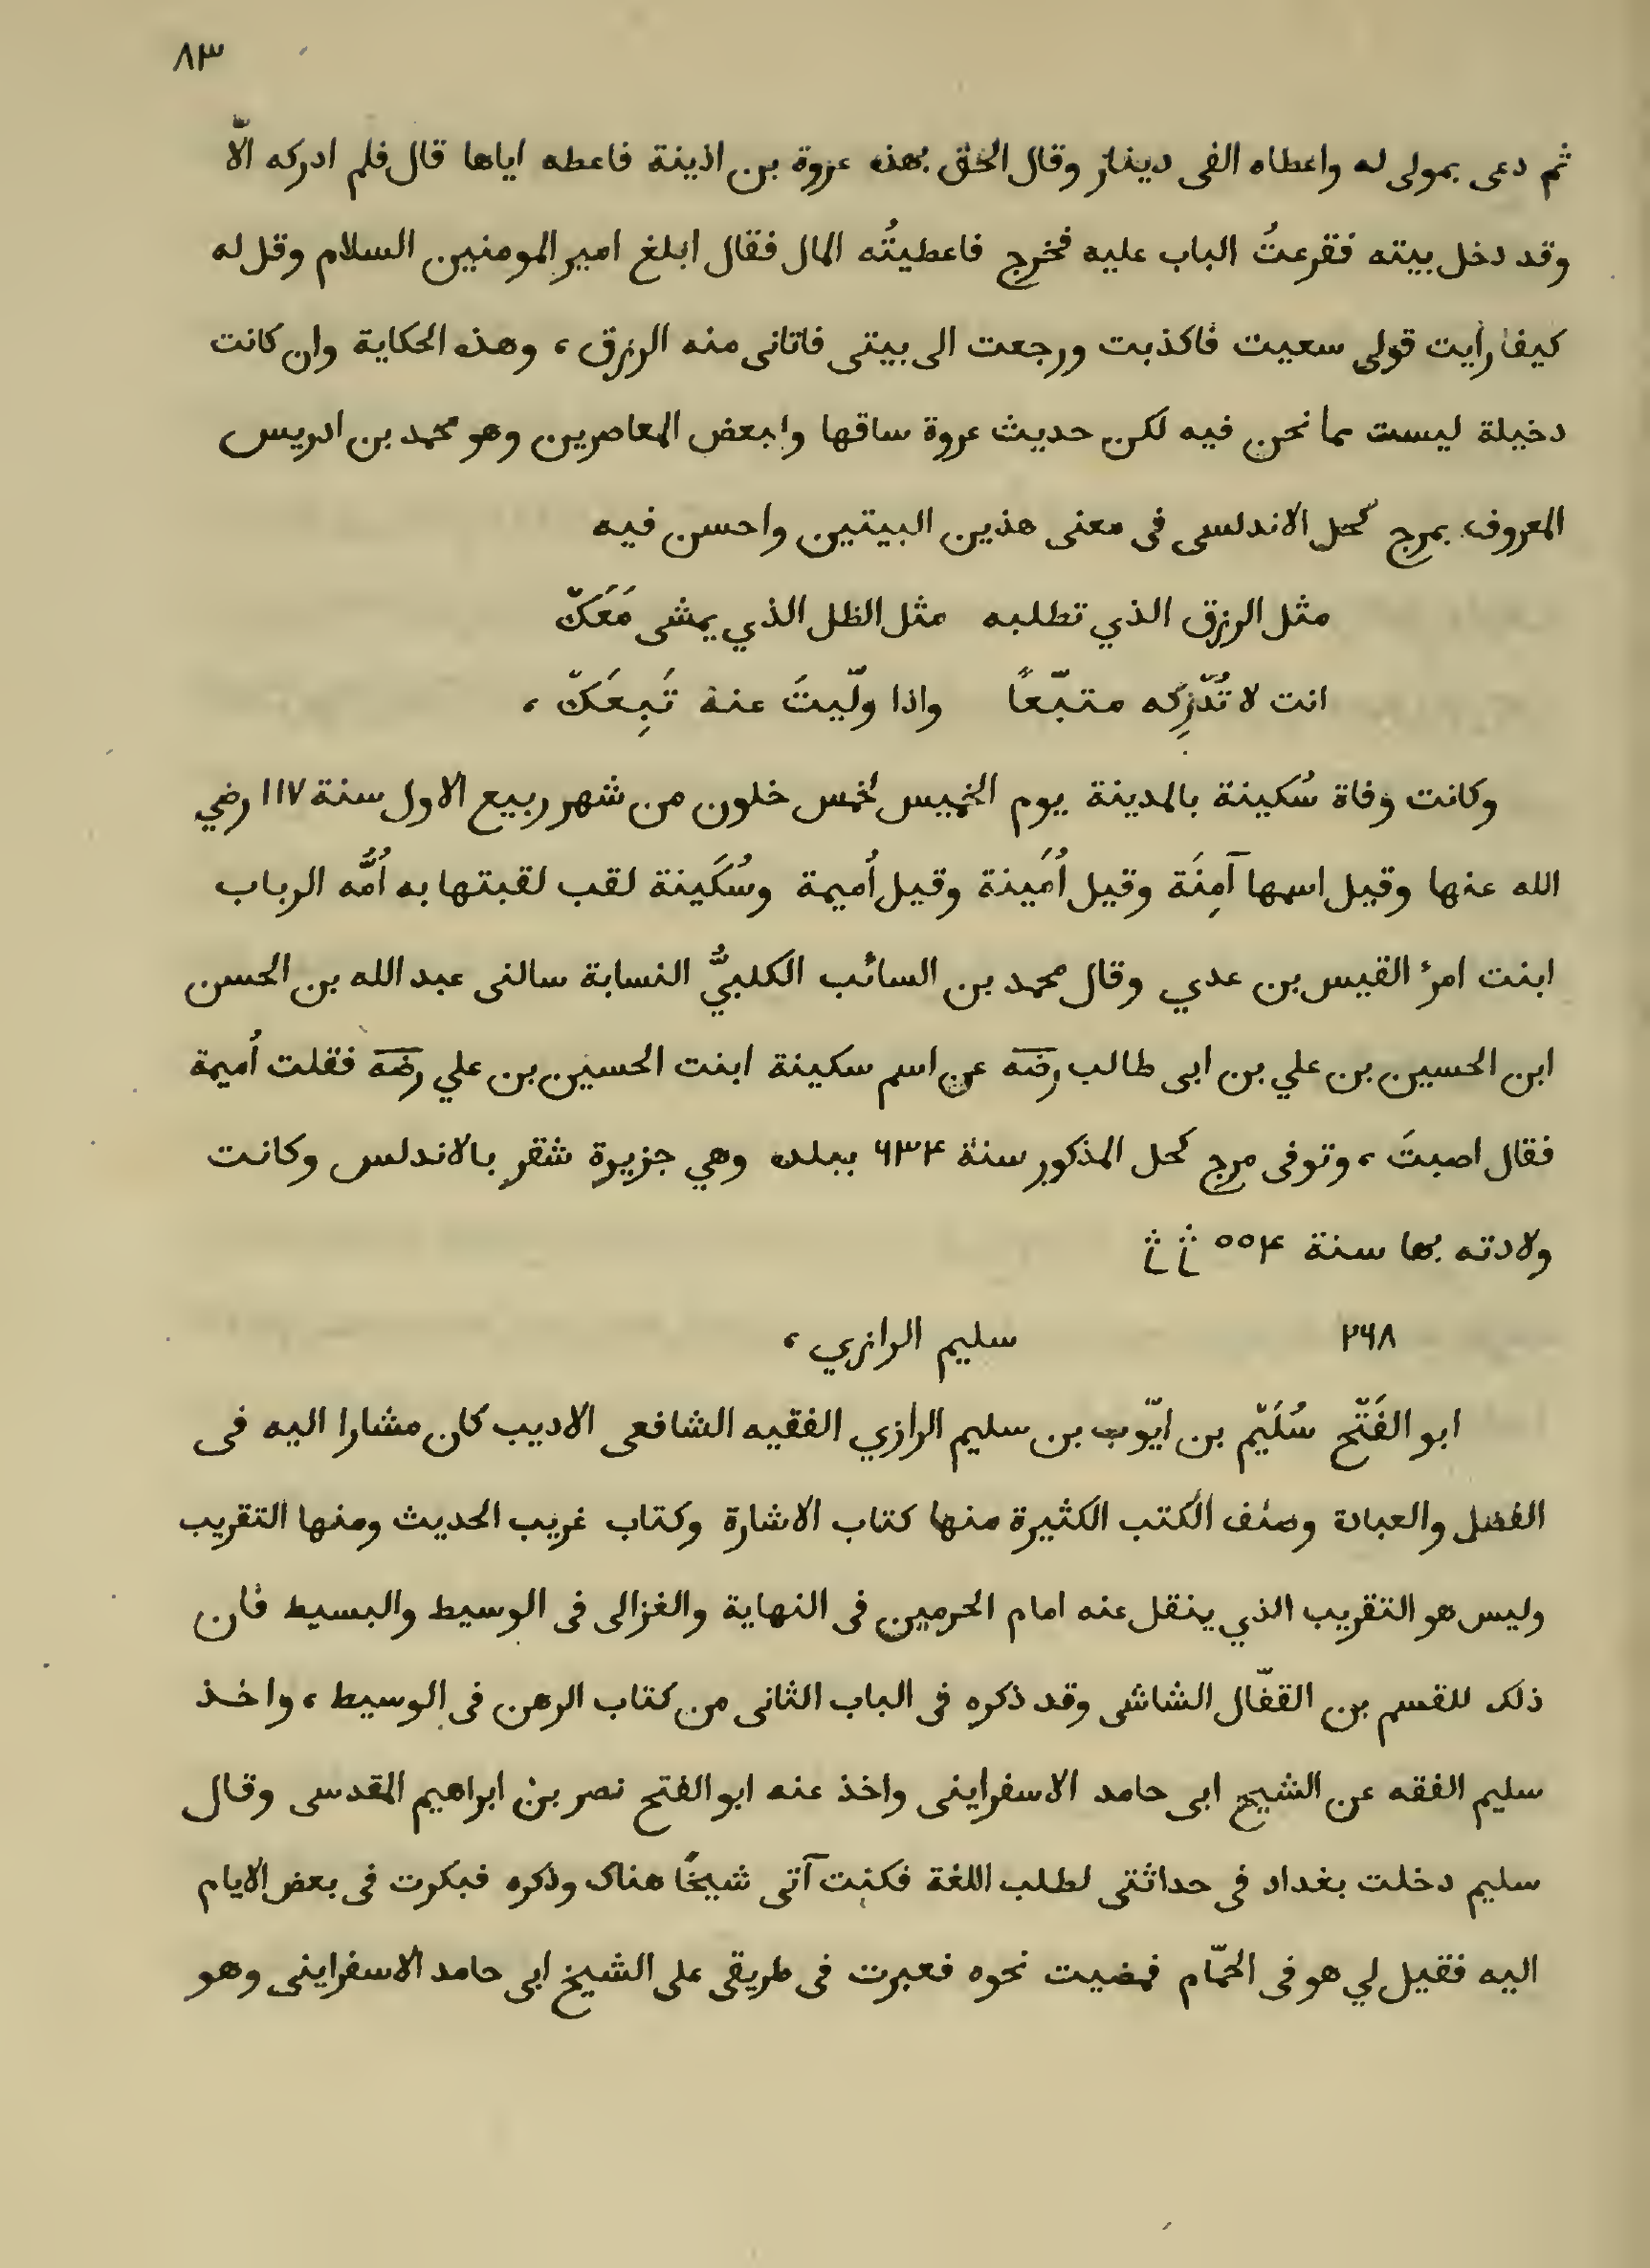 ٨٣
ثم دعى بمولى له واعطاه الفى دينار وقال الحق بهذه عروة بن اذينة فاعطه اياها قال فلم ادركه الّا
وقد دخل بيته فقرعتُ الباب عليه فخرج فاعطيتُه المال فقال ابلغ امير المومنين السلام وقل له
كيف رايت قولى سعيت فاكذبت ورجعت الى بيتى فاتانى منه الرزق ، وهذه الحكاية وان كانت
دخيلة ليست مما نحن فيه لكن حديث عروة ساقها ولبعض المعاصرين وهو محمد بن ادريس
المعروف بمرج كحل الاندلسى فى معنى هذين البيتين واحسن فيه
مثل الرزق الذي تطلبه مثل الظل الذي يمشى مَعَكْ
انت لا تُدْرِكه متبّعًا واذا ولّيتَ عنه تَبِعَكْ ،
وكانت وفاة سُكينة بالمدينة يوم الخميس لخمس خلون من شهر ربيع الاول سنة ١١٧ رضي
الله عنها وقيل اسمها آمِنَة وقيل اُمَينة وقيل اُميمة وسُكَينة لقب لقبتها به اُمُّه الرباب
ابنت امرئ القيس بن عدي وقال محمد بن السائب الكلبيُّ النسابة سالنى عبد الله بن الحسن
ابن الحسين بن علي بن ابى طالب رضه عن اسم سكينة ابنت الحسين بن علي رضه فقلت اُميمة
فقال اصبتَ ، وتوفى مرج كحل المذكور سنة ٦٣٤ ببلده وهي جزيرة شقر بالاندلس وكانت
ولادته بها سنة ٥٥٤
٢٦٨ سليم الرازي ،
ابو الفَتْح سُلَيْم بن ايّوب بن سليم الرازي الفقيه الشافعى الاديب كان مشارا اليه فى
الفضل والعبادة وصنف الكتب الكثيرة منها كتاب الاشارة وكتاب غريب الحديث ومنها التقريب
وليس هو التقريب الذي ينقل عنه امام الحرمين فى النهاية والغزالى فى الوسيط والبسيط فان
ذلك للقسم بن القفّال الشاشى وقد ذكره فى الباب الثانى من كتاب الرهن فى الوسيط ، واخذ
سليم الفقه عن الشيخ ابى حامد الاسفراينى واخذ عنه ابو الفتح نصر بن ابراهيم المقدسى وقال
سليم دخلت بغداد فى حداثتى لطلب اللغة فكنت آتى شيخًا هناك وذكره فبكرت فى بعض الايام
اليه فقيل لي هو فى الحمّام فمضيت نحوه فعبرت فى طريقى على الشيخ ابى حامد الاسفراينى وهو